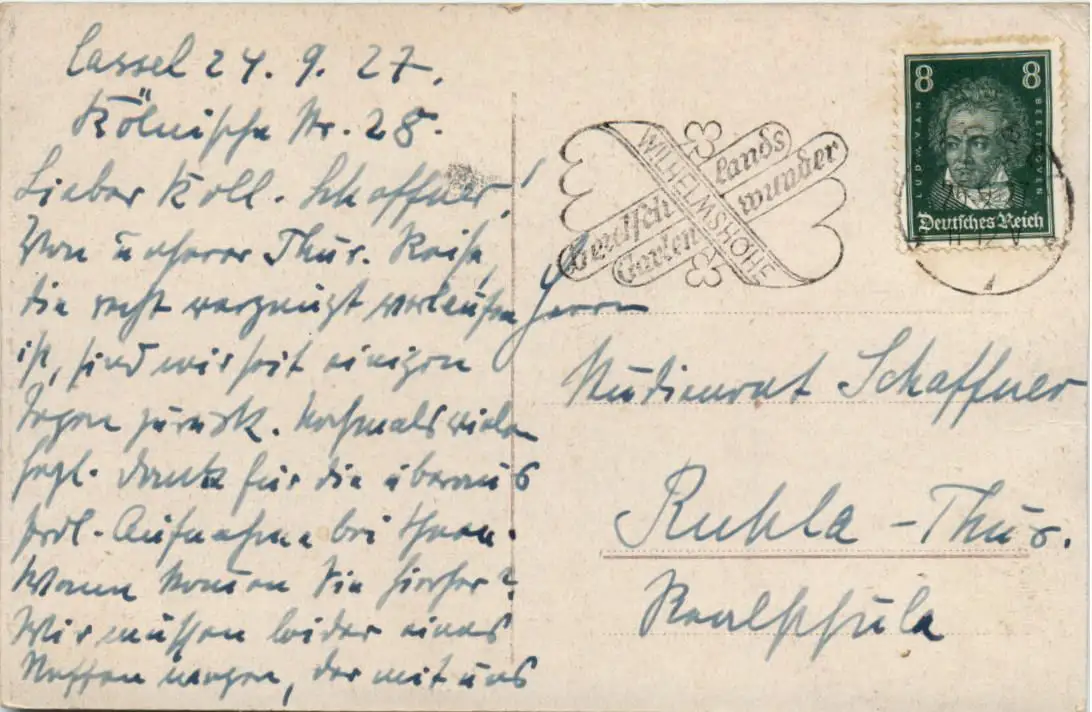 Cassel 24. 9. 27.
Kölnische Str. 28.
Lieber Koll. Schaffner!
Von unserer Thür. Reise,
die recht vergnügt verlaufen
ist, sind wir seit einigen
Tagen zurück. Nochmals vielen
hzgl. Dank für die überaus
frdl. Aufnahme bei Ihnen.
Wann kommen Sie hierher?
Wir müssen leider eines
Neffen wegen, der mit uns
WILHELMSHÖHE
Deutschlands
Gartenwunder
8 8
LUDW. VAN BEETHOVEN
Deutsches Reich
Herrn
Studienrat Schaffner
Ruhla - Thür.
Realschule